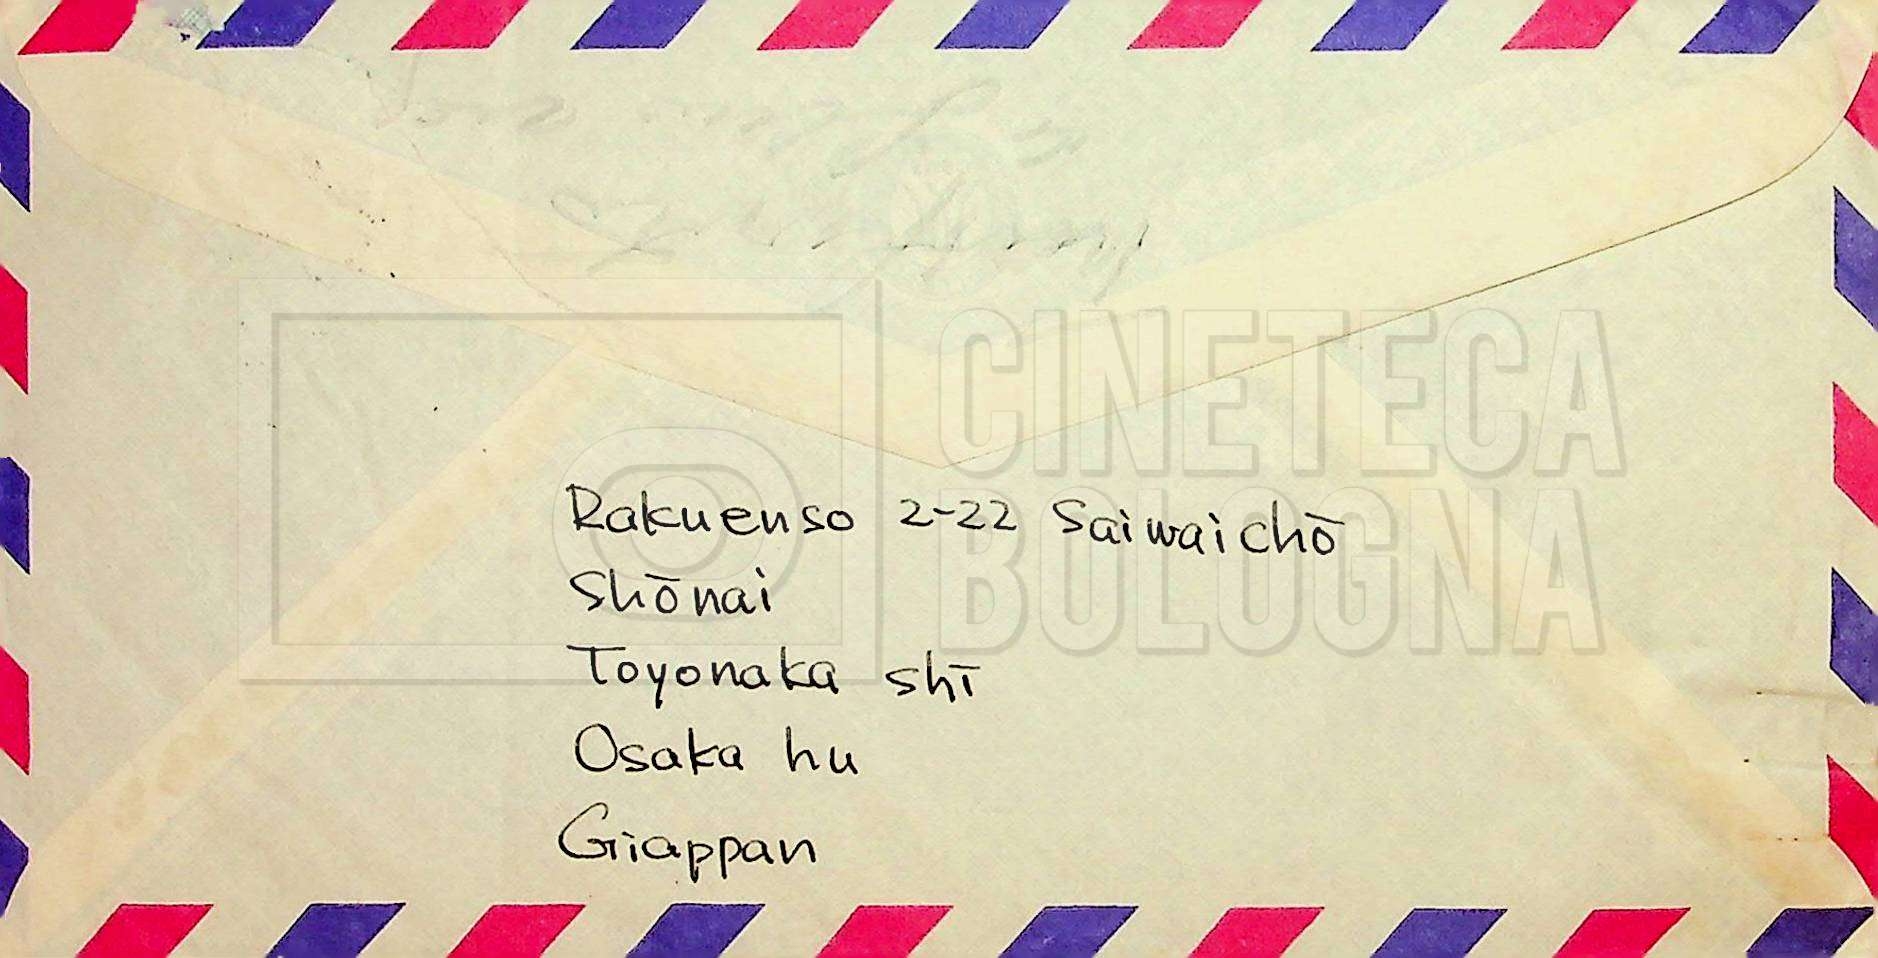 CINETECA
BOLOGNA
Rakuenso 2-22 Saiwaichō
Shōnai
Toyonaka shī
Osaka hu
Giappan